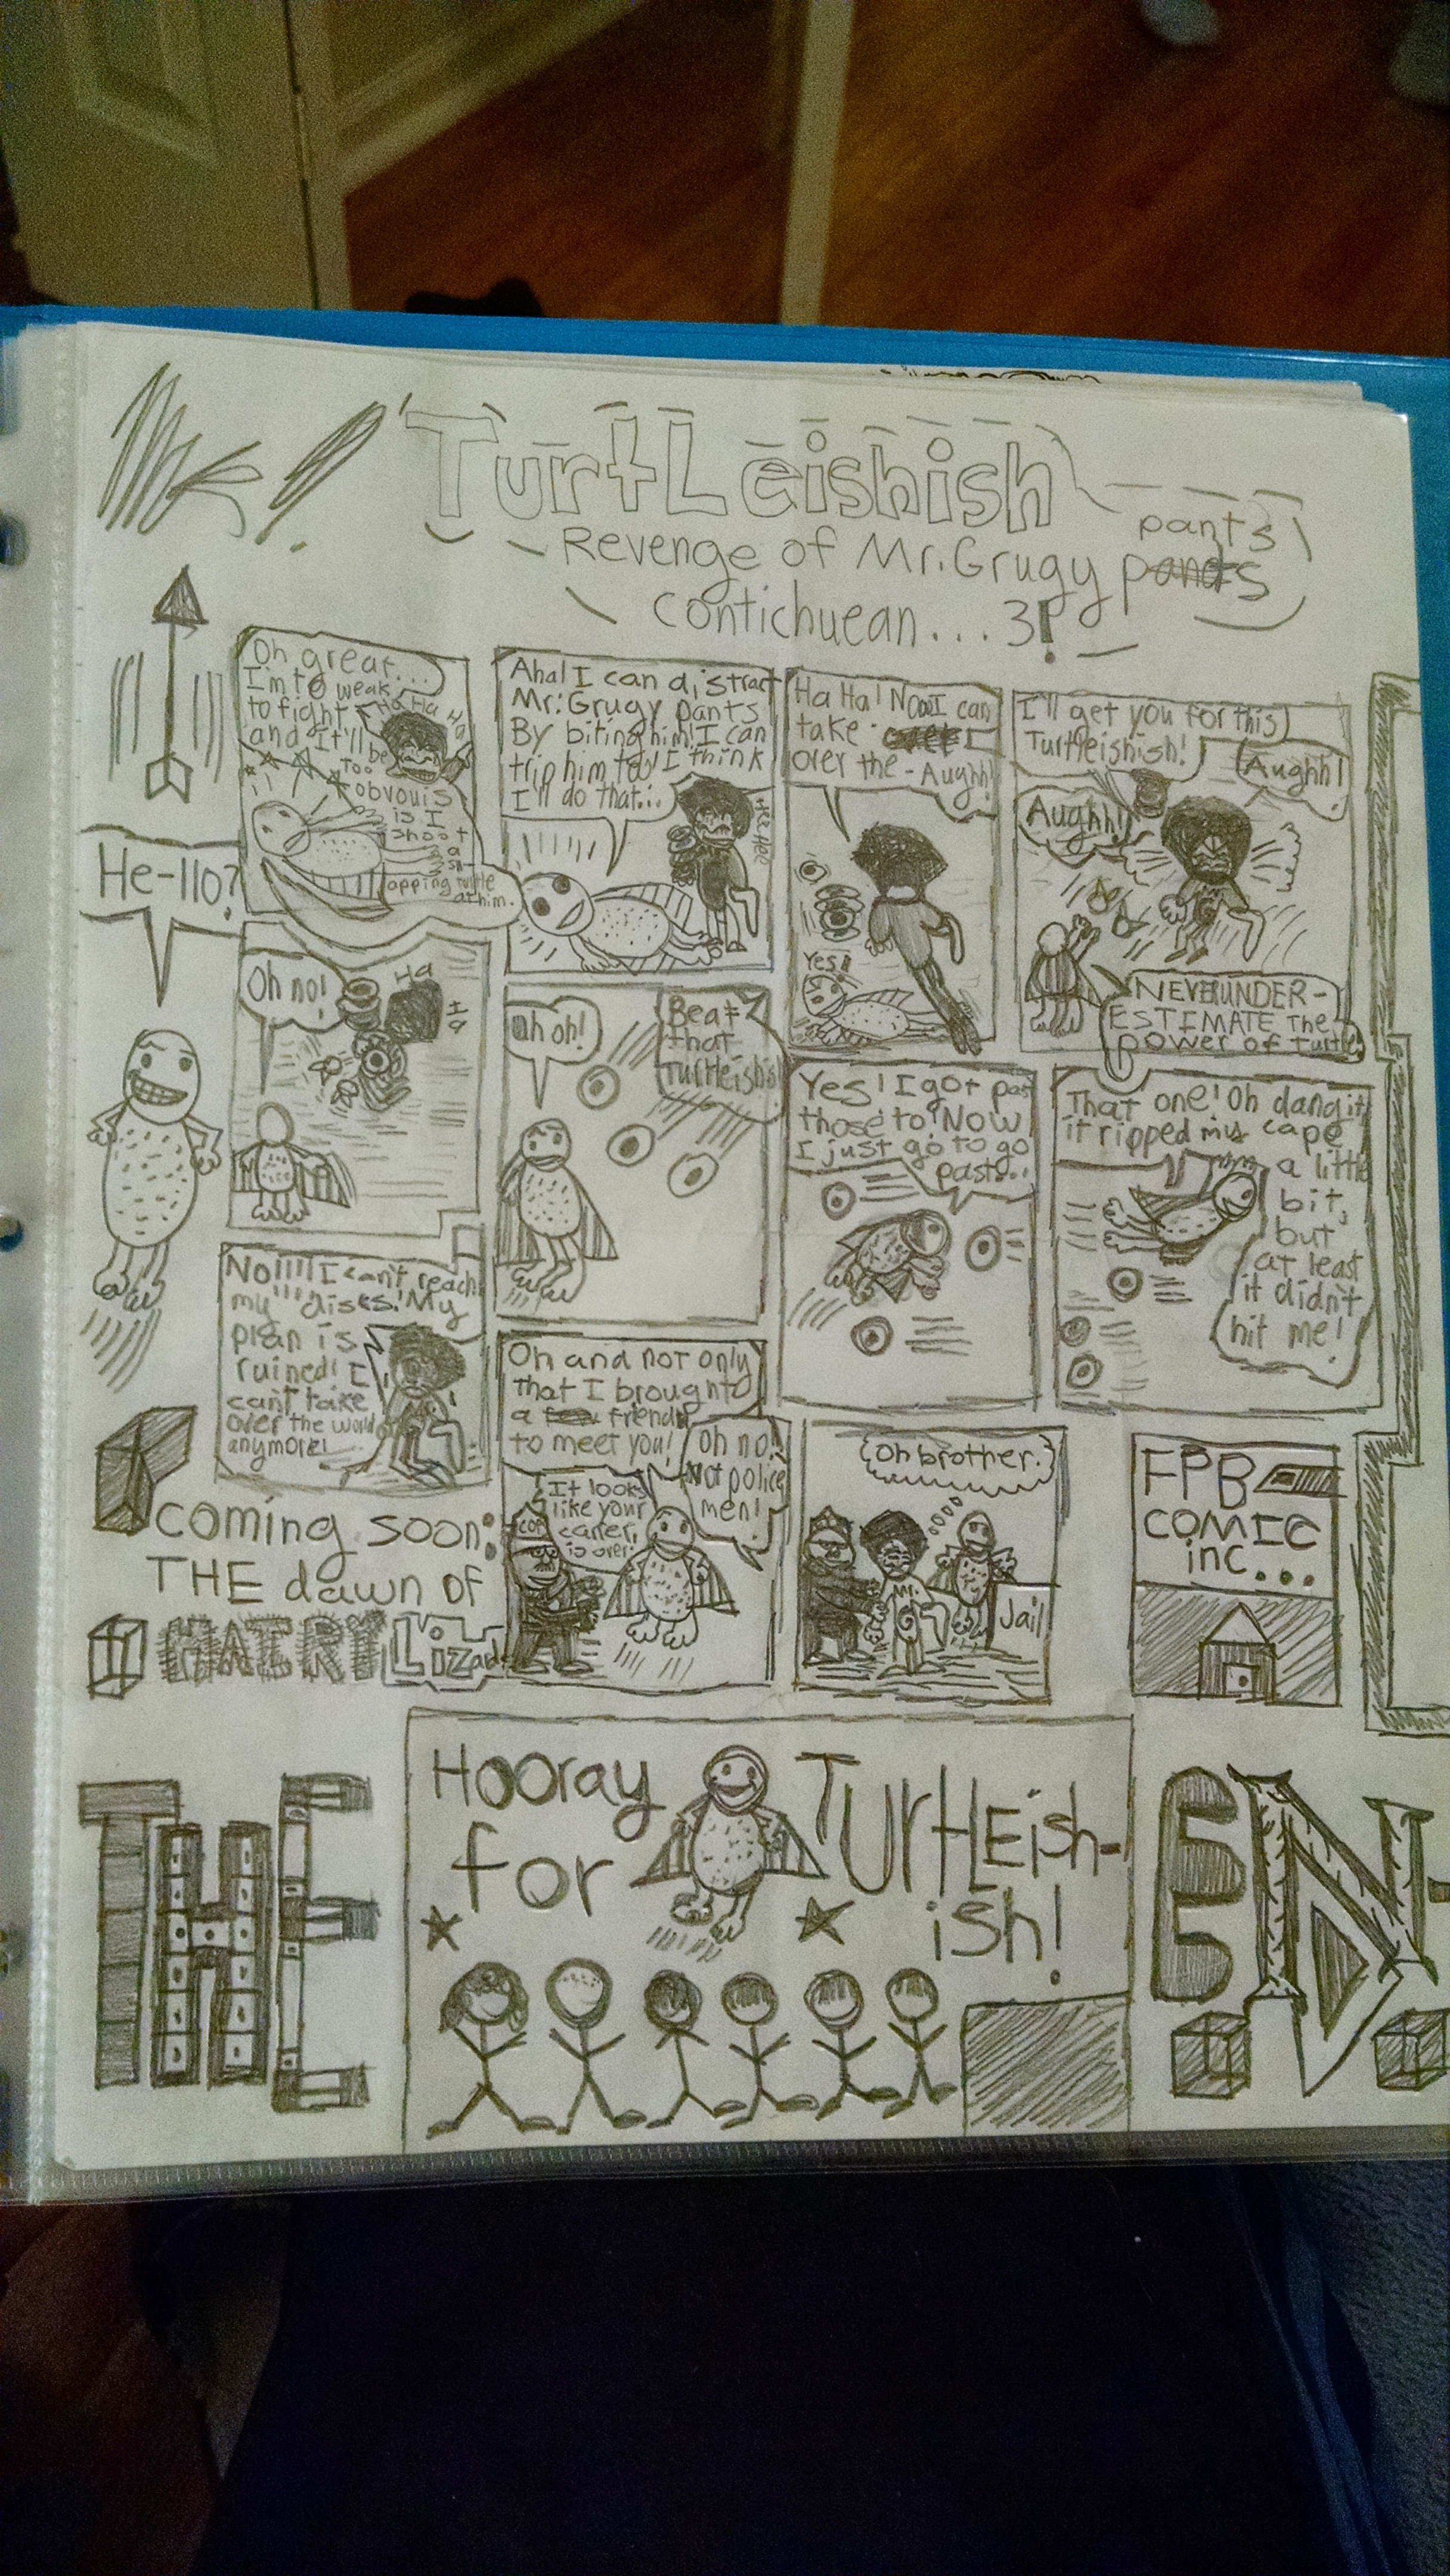 Mr. Turtleishish
Revenge of Mr. Grugy pants
pants
contichuean... 3!
He-llo?
Oh great...
I'm to weak
to fight
and It'll be
too
obvouis
is I
shoot
a
sn-
apping turtle
at him.
Ha Ha Ha
Aha! I can distract
Mr. Grugy pants
By biting him! I can
trip him to! I think
I'll do that...
Hee Hee
Ha Ha! Now I can
take
over the - Aughh!
Yes!
I'll get you for this
Turtleishish!
Aughh!
Aughh!
NEVER UNDER-
ESTIMATE The
power of Turtle
Oh no!
Ha
Ha
uh oh!
Beat
that
Turtleishish
Yes! I got past
those to! Now
I just go to go
past...
That one! Oh dang it
it ripped my cape
a little
bit,
but
at least
it didn't
hit me!
No!!!! I can't reach
my disks! My
plan is
ruined! I
can't take
over the world
anymore!
Oh and not only
that I brought
a few friends
to meet you!
Oh no!
Not police
men!
It looks
like your
career
is over!
COP
Oh brother.
Mr.
G
Jail
FPB
COMIC
inc...
coming soon:
THE dawn of
HATRY Lizard
Hooray
for
TurtLeish-
ish!
THE
END